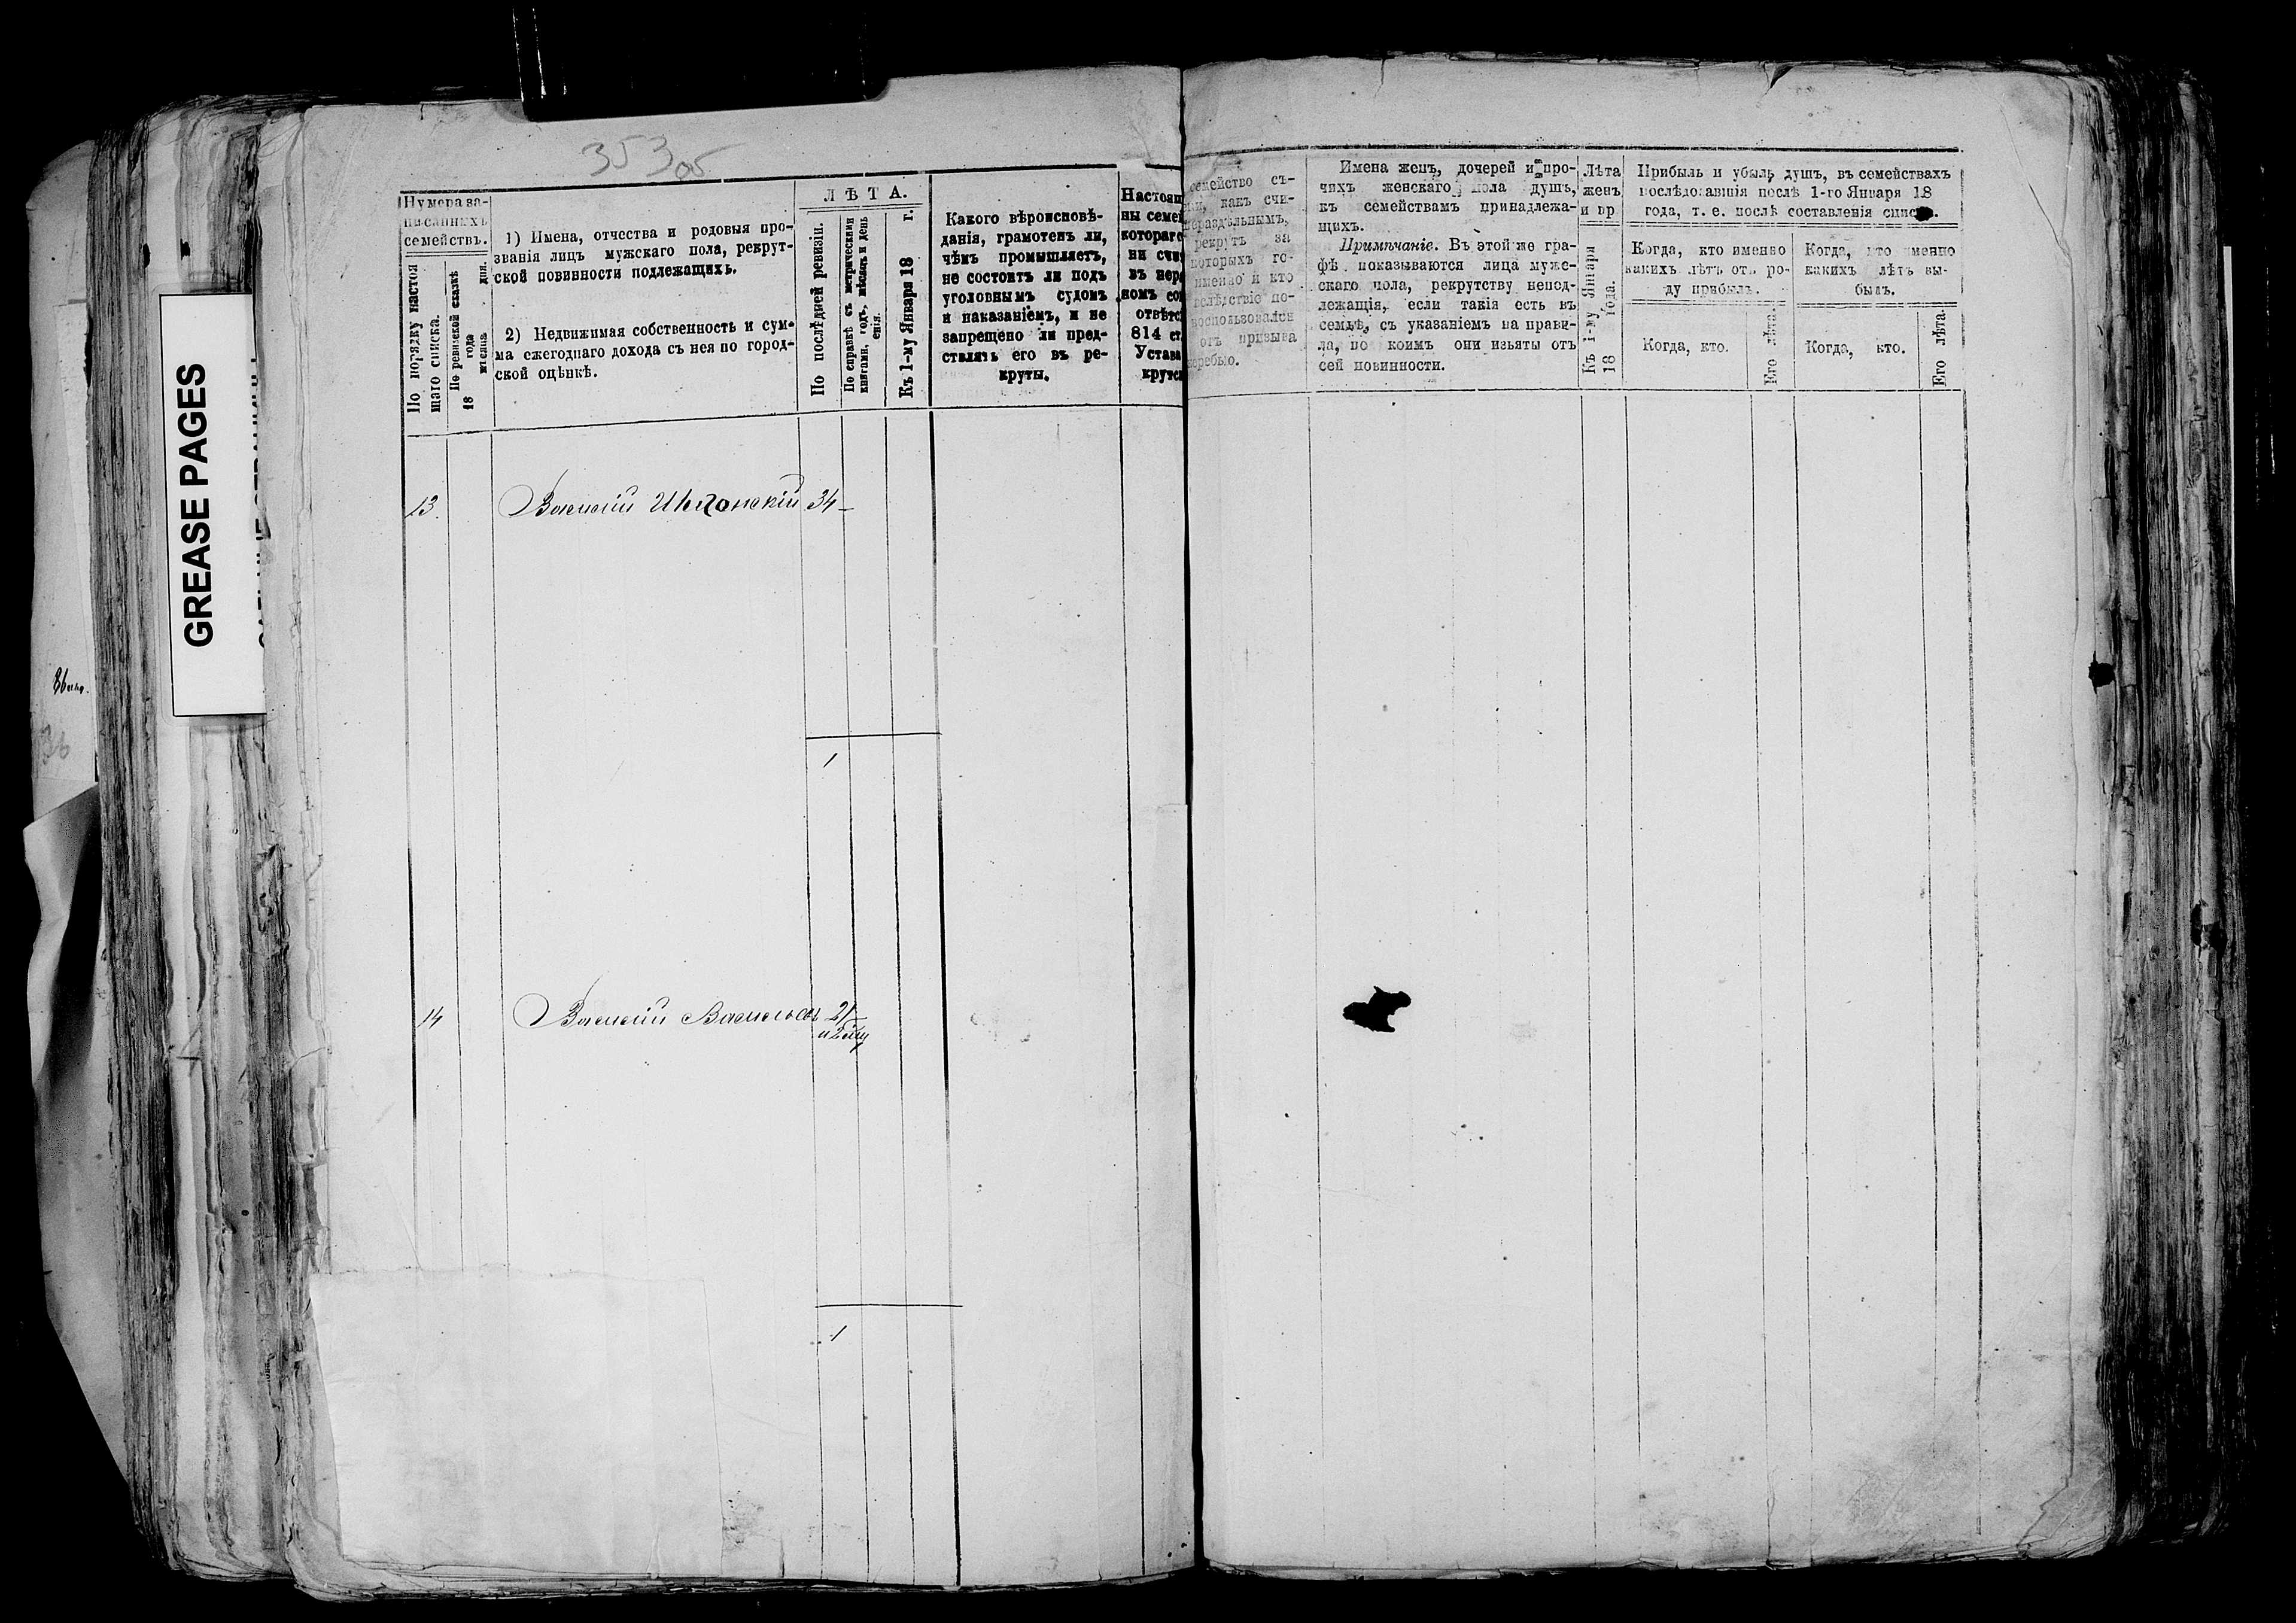 353об
GREASE PAGES
Нумера за-
писанныхъ
семействъ.
По порядку настоя
щаго списка.
По ревизской сказкѣ
18 года
мѣсяца дня.
1) Имена, отчества и родовыя про-
званія лицъ мужскаго пола, рекрут-
ской повинности подлежащихъ.
2) Недвижимая собственность и сум-
ма ежегоднаго дохода съ нея по город-
ской оцѣнкѣ.
ЛѢТА.
По послѣдней ревизіи.
По справкѣ съ метрическими
книгами, годъ, мѣсяцъ и день
Къ 1-му Января 18 г.
Какого вѣроисповѣ-
данія, грамотенъ ли,
чѣмъ промышляетъ,
не состоитъ ли подъ
уголовнымъ судомъ
и наказаніемъ, и не
запрещено ли пред-
ставлять его въ ре-
круты.
Настоящ
ны семей
котораго
ни счи
въ нера
номъ со
отвѣтс
814 ст.
Устава
крутс
семейство съ-
ли, какъ счи-
нераздѣльнымъ,
рекрутъ за
которыхъ го-
именно и кто
вслѣдствіе по-
воспользовался
отъ призыва
жеребью.
Имена женъ, дочерей и про-
чихъ женскаго пола душъ,
къ семействамъ принадлежа-
щихъ.
Примѣчаніе. Въ этой же гра-
фѣ показываются лица муже-
скаго пола, рекрутству непод-
лежащія, если такія есть въ
семьѣ, съ указаніемъ на прави-
ла, по коимъ они изъяты отъ
сей повинности.
Лѣта
женъ
и пр
Къ 1-му Января
18 года.
Прибыль и убыль душъ, въ семействахъ
послѣдовавшія послѣ 1-го Января 18
года, т. е. послѣ составленія списка.
Когда, кто именно
какихъ лѣтъ отъ ро-
ду прибылъ.
Когда, кто.
Его лѣта.
Когда, кто именно
какихъ лѣтъ вы-
былъ.
Когда, кто.
Его лѣта.
13.
Василій 34
1
14
Василій Васильевъ 21
1